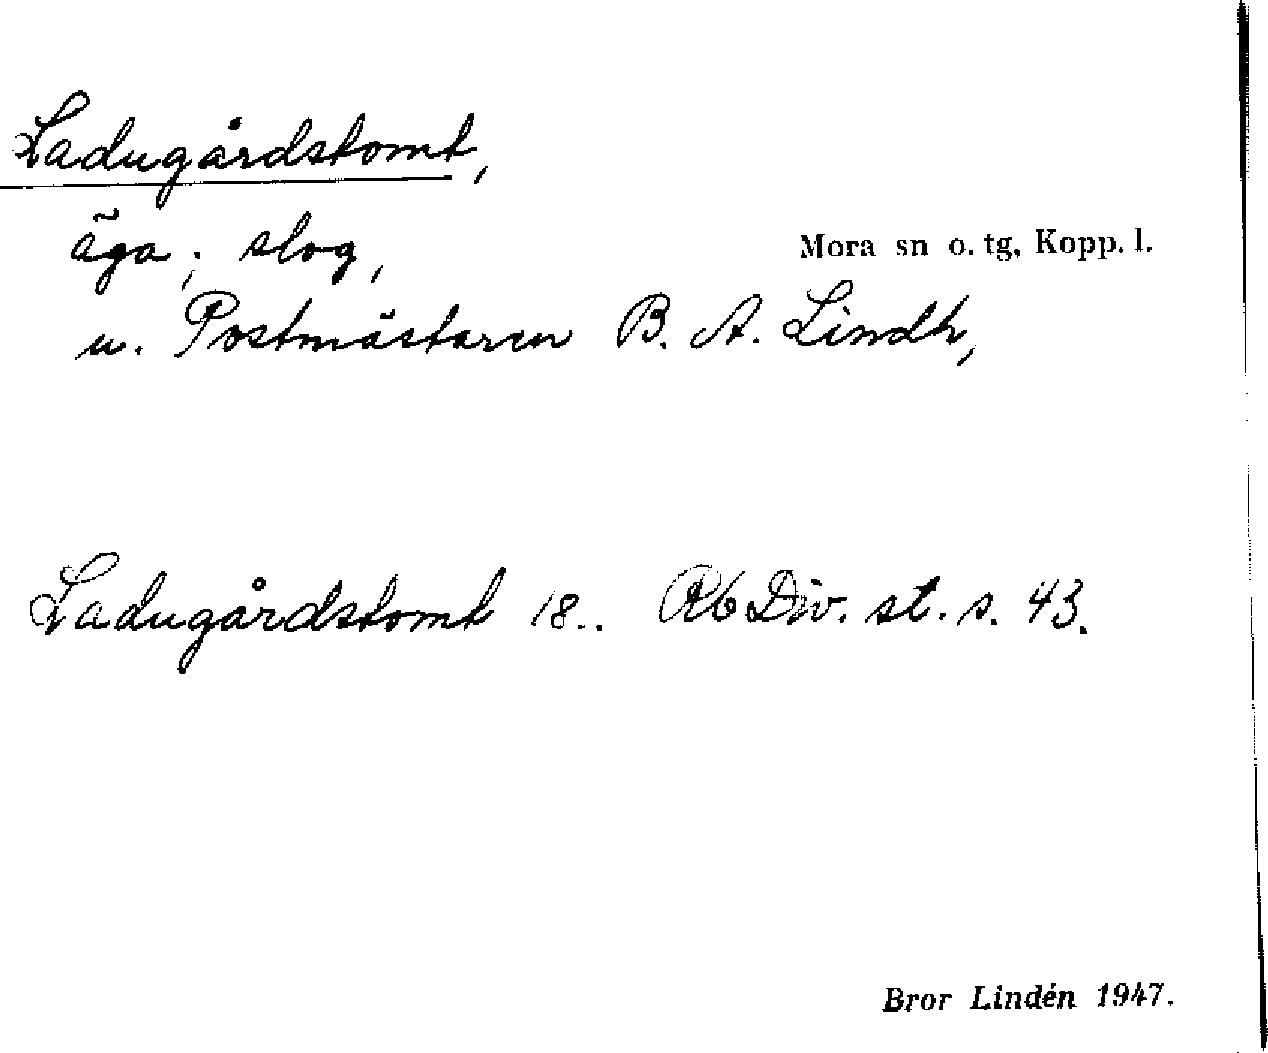 Ladugårdstomt,
äga; slog,
Mora sn o. tg, Kopp. l.
u. Postmästaren B. A. Lindh,
Ladugårdstomt 18.. Rb Div. st. s. 43.
Bror Lindén 1947.